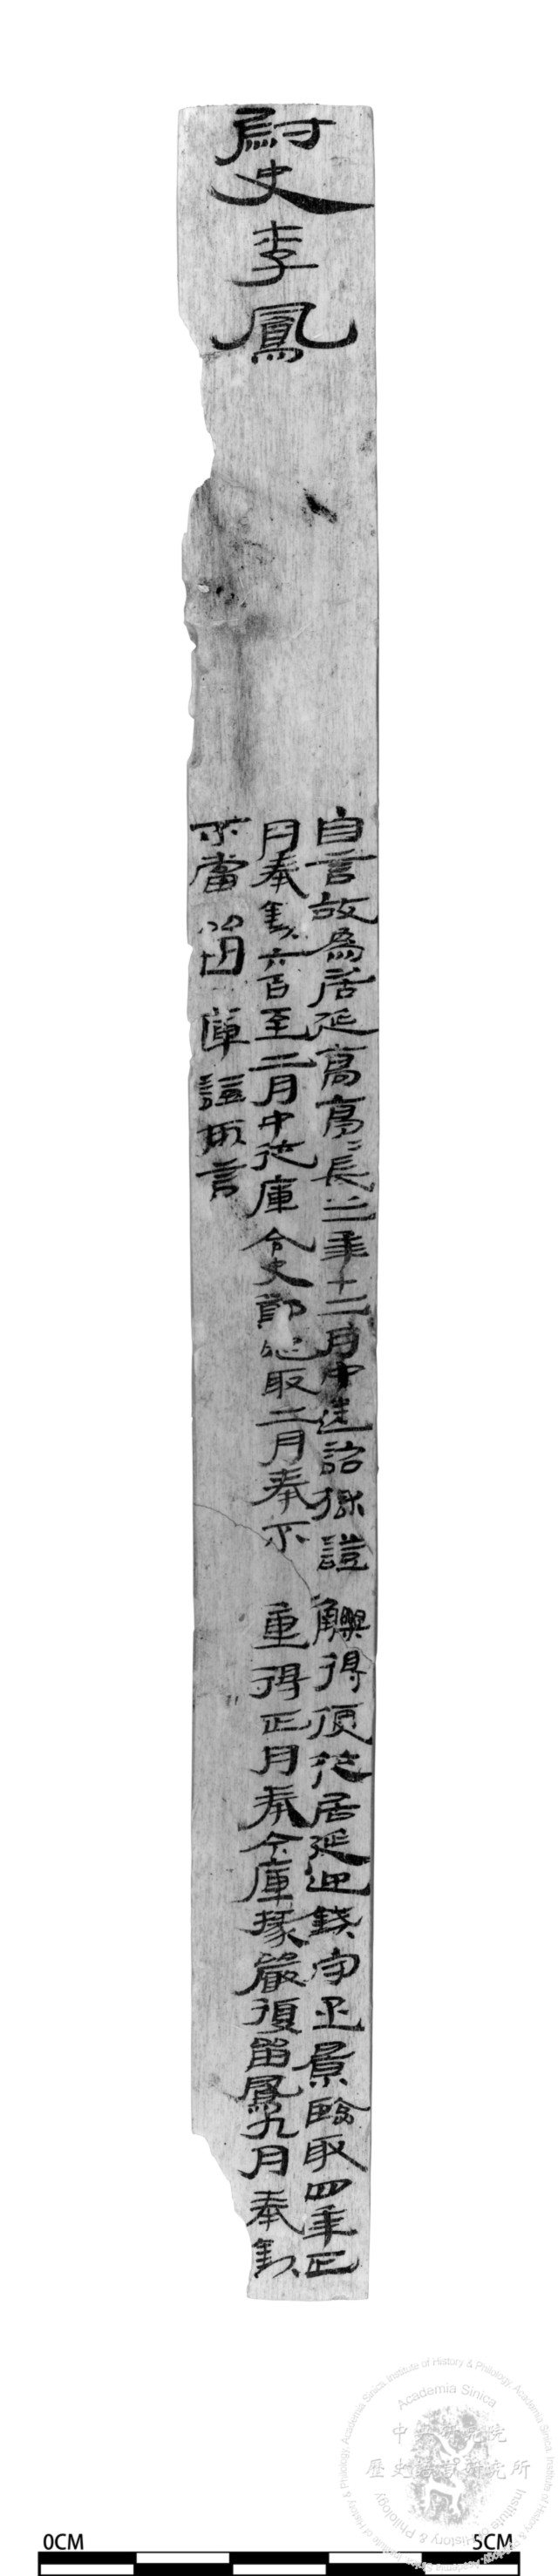 尉史李鳳
自言故為居延高亭=長三年十二月中送詔獄證觻得便從居延迎錢守丞景臨取四年正
月奉錢六百至二月中從庫令史鄭忠取二月奉不重得正月奉今庫掾嚴復留鳳九月奉錢
不當留庫證所言
0CM 5CM
中央研究院
歷史語言研究所
Academia Sinica
Institute of History & Philology